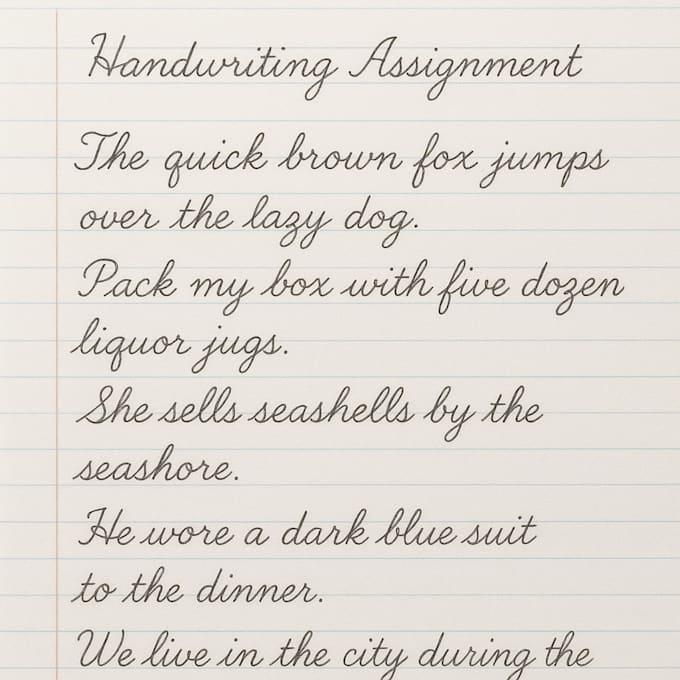 Handwriting Assignment
The quick brown fox jumps
over the lazy dog.
Pack my box with five dozen
liquor jugs.
She sells seashells by the
seashore.
He wore a dark blue suit
to the dinner.
We live in the city during the